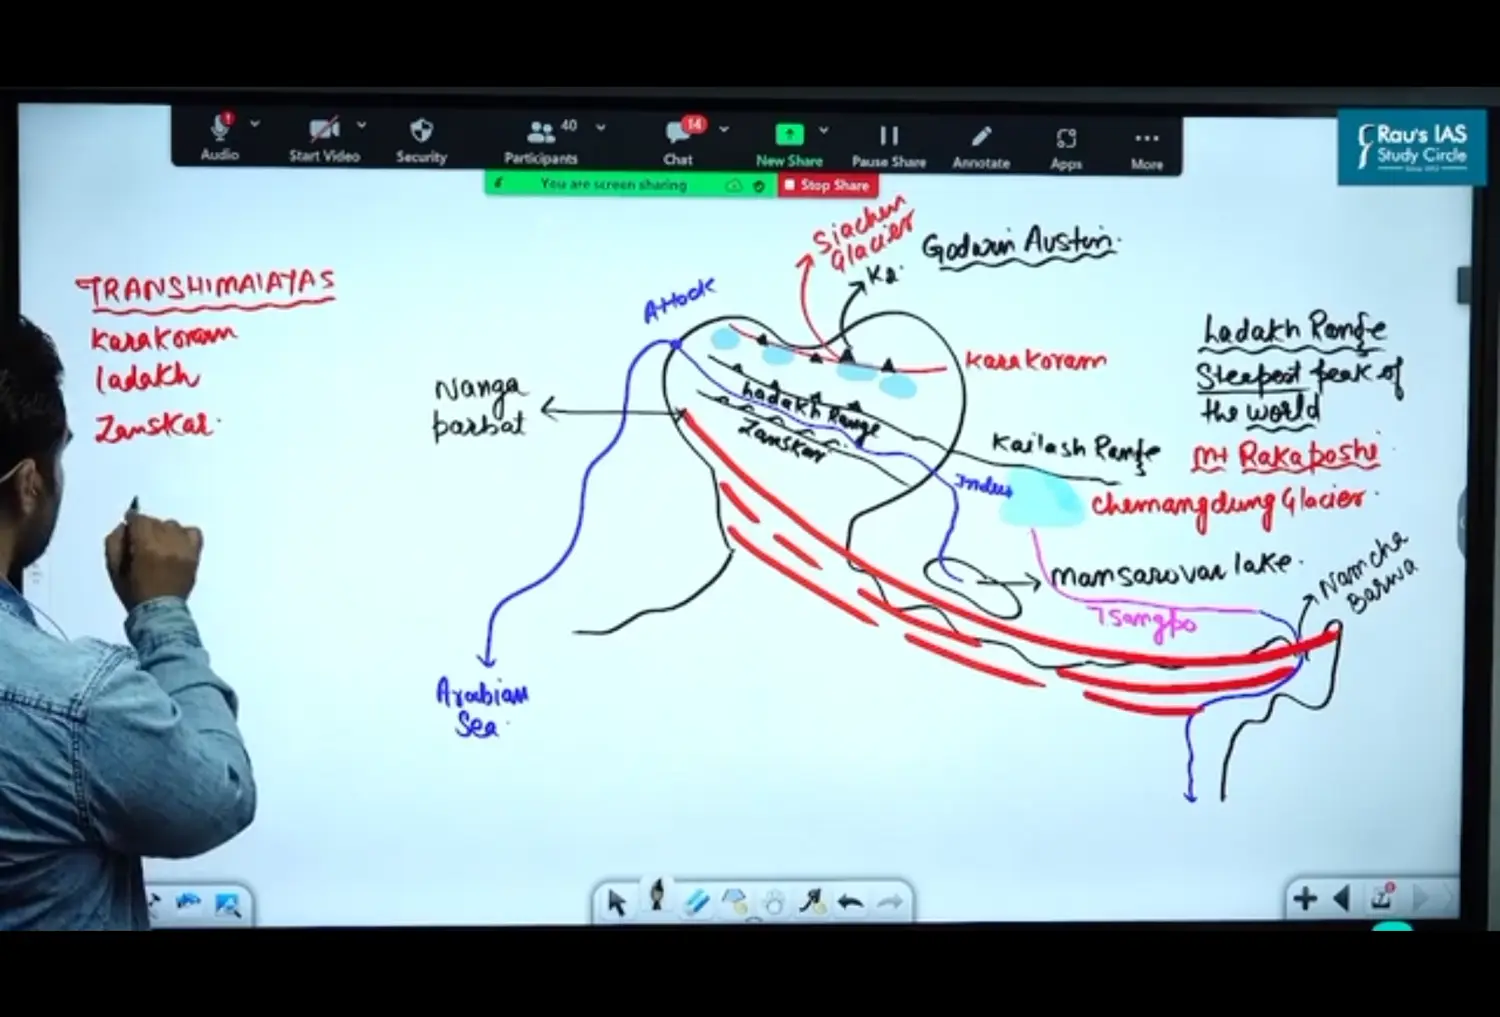 Audio
Start Video
Security
40
Participants
14
Chat
New Share
Pause Share
Annotate
Apps
More
You are screen sharing
Stop Share
Rau's IAS
Study Circle
TRANSHIMALAYAS
Karakoram
ladakh
Zanskar
Attock
Siachen
Glacier
K2.
Godwin Austin.
Karakoram
Ladakh Range
Steepest peak of
the world
Mt Rakaposhi
Nanga
parbat
Ladakh Range
Zanskar
Kailash Range
Indus
Chemangdung Glacier.
Mansarovar lake.
Namcha
Barwa
Tsangpo
Arabian
Sea.